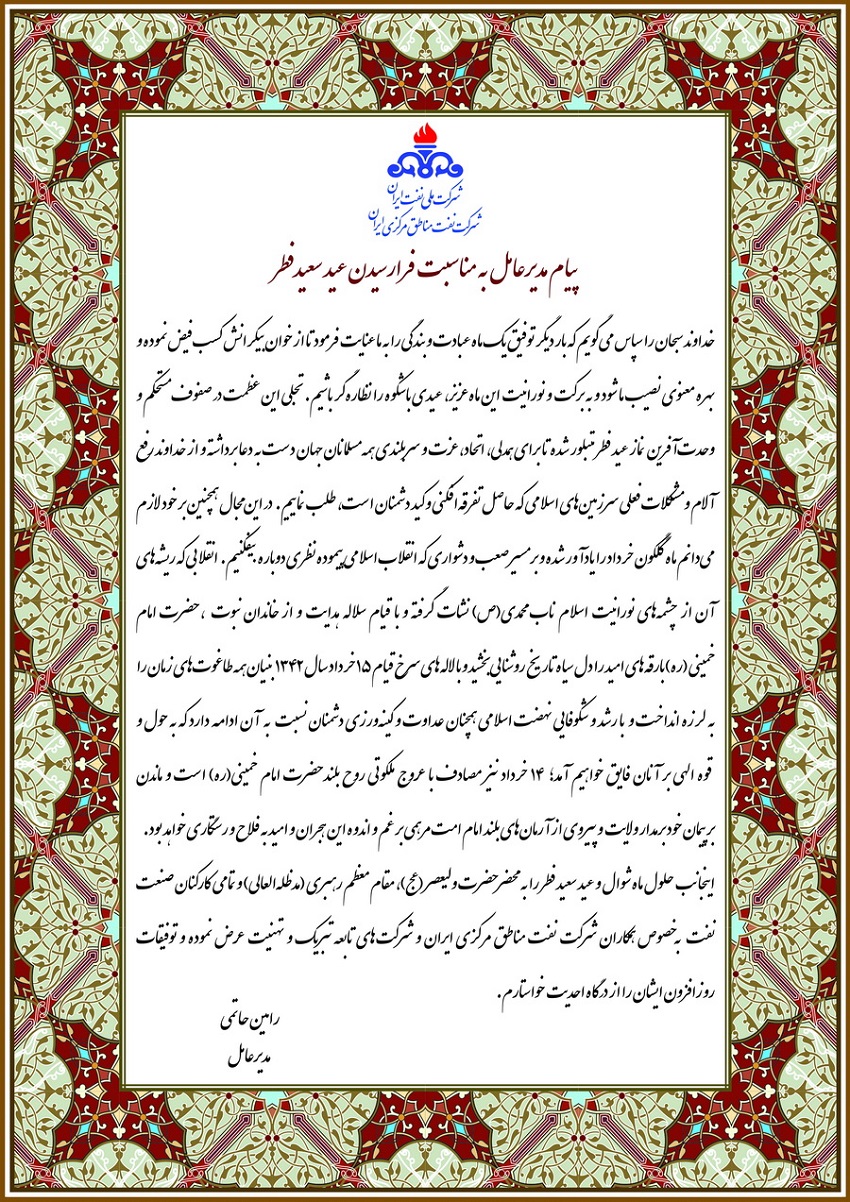 شرکت ملی نفت ایران
شرکت نفت مناطق مرکزی ایران
پیام مدیرعامل به مناسبت فرارسیدن عید سعید فطر
خداوند سبحان را سپاس می‌گویم که بار دیگر توفیق یک ماه عبادت و بندگی را به ما عنایت فرمود تا از خوان بیکرانش کسب فیض نموده و
بهره معنوی نصیب ما شود و به برکت و نورانیت این ماه عزیز، عیدی باشکوه را نظاره‌گر باشیم. تجلی این عظمت در صفوف مستحکم و
وحدت‌آفرین نماز عید فطر متبلور شده تا برای همدلی، اتحاد، عزت و سربلندی همه مسلمانان جهان دست به دعا برداشته و از خداوند رفع
آلام و مشکلات فعلی سرزمین‌های اسلامی که حاصل تفرقه‌افکنی و کید دشمنان است، طلب نماییم. در این مجال همچنین بر خود لازم
می‌دانم ماه گلگون خرداد را یادآور شده و بر مسیر صعب و دشواری که انقلاب اسلامی پیموده نظری دوباره بیفکنیم. انقلابی که ریشه‌های
آن از چشمه‌های نورانیت اسلام ناب محمدی(ص) نشات گرفته و با قیام سلاله هدایت و از خاندان نبوت ، حضرت امام
خمینی (ره) بارقه‌های امید را در دل سیاه تاریخ روشنایی بخشید و با لاله‌های سرخ قیام ۱۵ خرداد سال ۱۳۴۲ بنیان همه طاغوت‌های زمان را
به لرزه انداخت و با رشد و شکوفایی نهضت اسلامی همچنان عداوت و کینه‌ورزی دشمنان نسبت به آن ادامه دارد که به حول و
قوه الهی بر آنان فایق خواهیم آمد؛ ۱۴ خرداد نیز مصادف با عروج ملکوتی روح بلند حضرت امام خمینی(ره) است و ماندن
بر پیمان خود بر مدار ولایت و پیروی از آرمان‌های بلند امام امت مرهمی بر غم و اندوه این هجران و امید به فلاح و رستگاری خواهد بود.
اینجانب حلول ماه شوال و عید سعید فطر را به محضر حضرت ولیعصر(عج)، مقام معظم رهبری (مدظله‌العالی) و تمامی کارکنان صنعت
نفت به‌خصوص همکاران شرکت نفت مناطق مرکزی ایران و شرکت‌های تابعه تبریک و تهنیت عرض نموده و توفیقات
روزافزون ایشان را از درگاه احدیت خواستارم.
رامین حاتمی
مدیرعامل